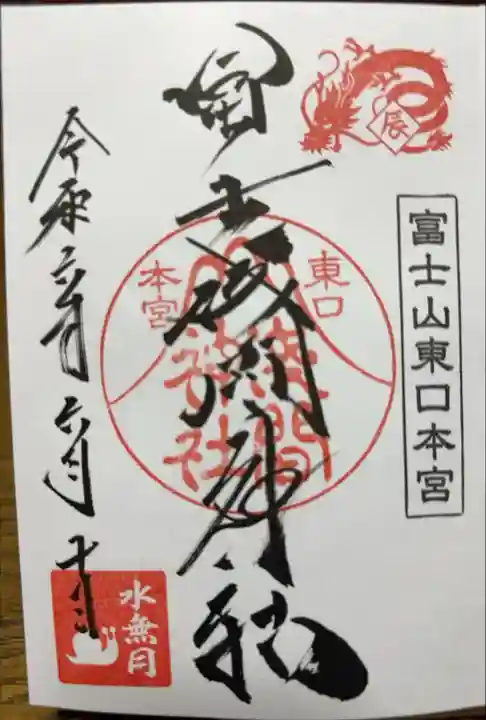 辰
富士山東口本宮
冨士浅間神社
東口
本宮
淺間
神社
令和六年六月
水無月